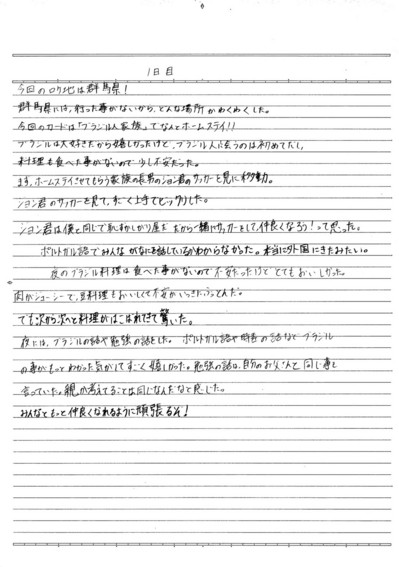 1日目
今回のロケ地は群馬県!
群馬県には、行った事がないから、どんな場所かわくわくした。
今回のカードは「ブラジル人家族」でなんとホームステイ!!
ブラジルは大好きだから嬉しかったけど、ブラジル人に会うのは初めてだし、
料理も食べた事がないので少し不安だった。
まず、ホームステイさせてもらう家族の長男のション君のサッカーを見に移動。
ション君のサッカーを見て、すごく上手でビックリした。
ション君は僕と同じで恥ずかしがり屋だから一緒にサッカーをして、仲良くなろう!って思った。
ポルトガル語でみんながなにを話しているかわからなかった。本当に外国にきたみたい。
夜のブラジル料理は食べた事がないので不安だったけどとてもおいしかった。
肉がジューシーで、豆料理もおいしくて不安がいっきにふっとんだ。
でも次から次へと料理がはこばれてきて驚いた。
夜には、ブラジルの話や勉強の話をした。ポルトガル語や時差の話などブラジル
の事がもっとわかった気がしてすごく嬉しかった。勉強の話は、自分のお父さんと同じ事を
言っていた。親が考えてることは同じなんだなと感じた。
みんなともっと仲良くなれるように頑張るぞ!